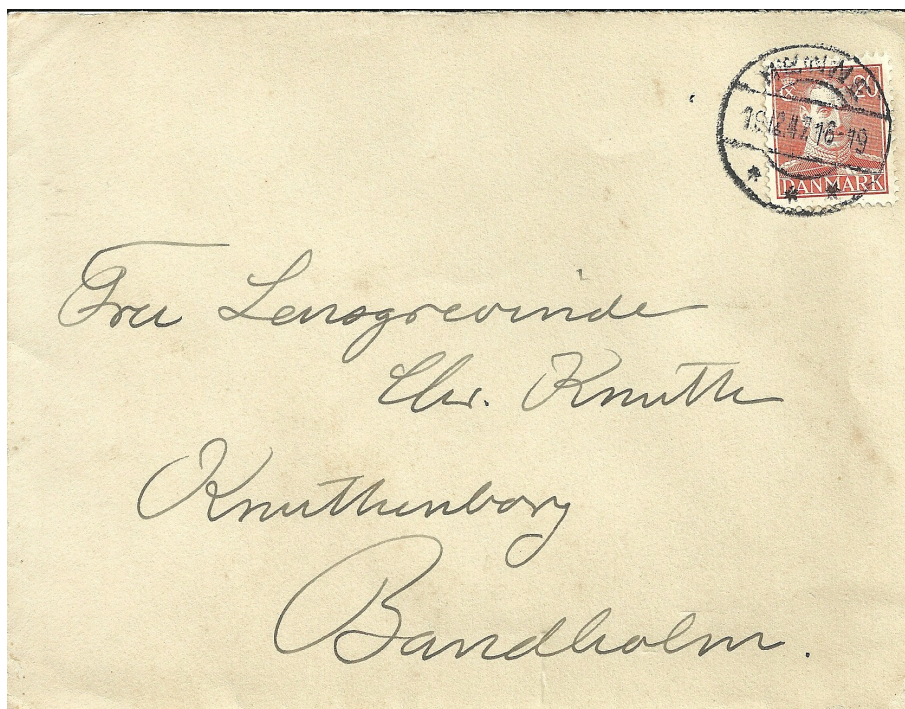 20
16-19
DANMARK
Fru Lensgrevinde
Chr. Knuth
Knuthenborg
Bandholm.